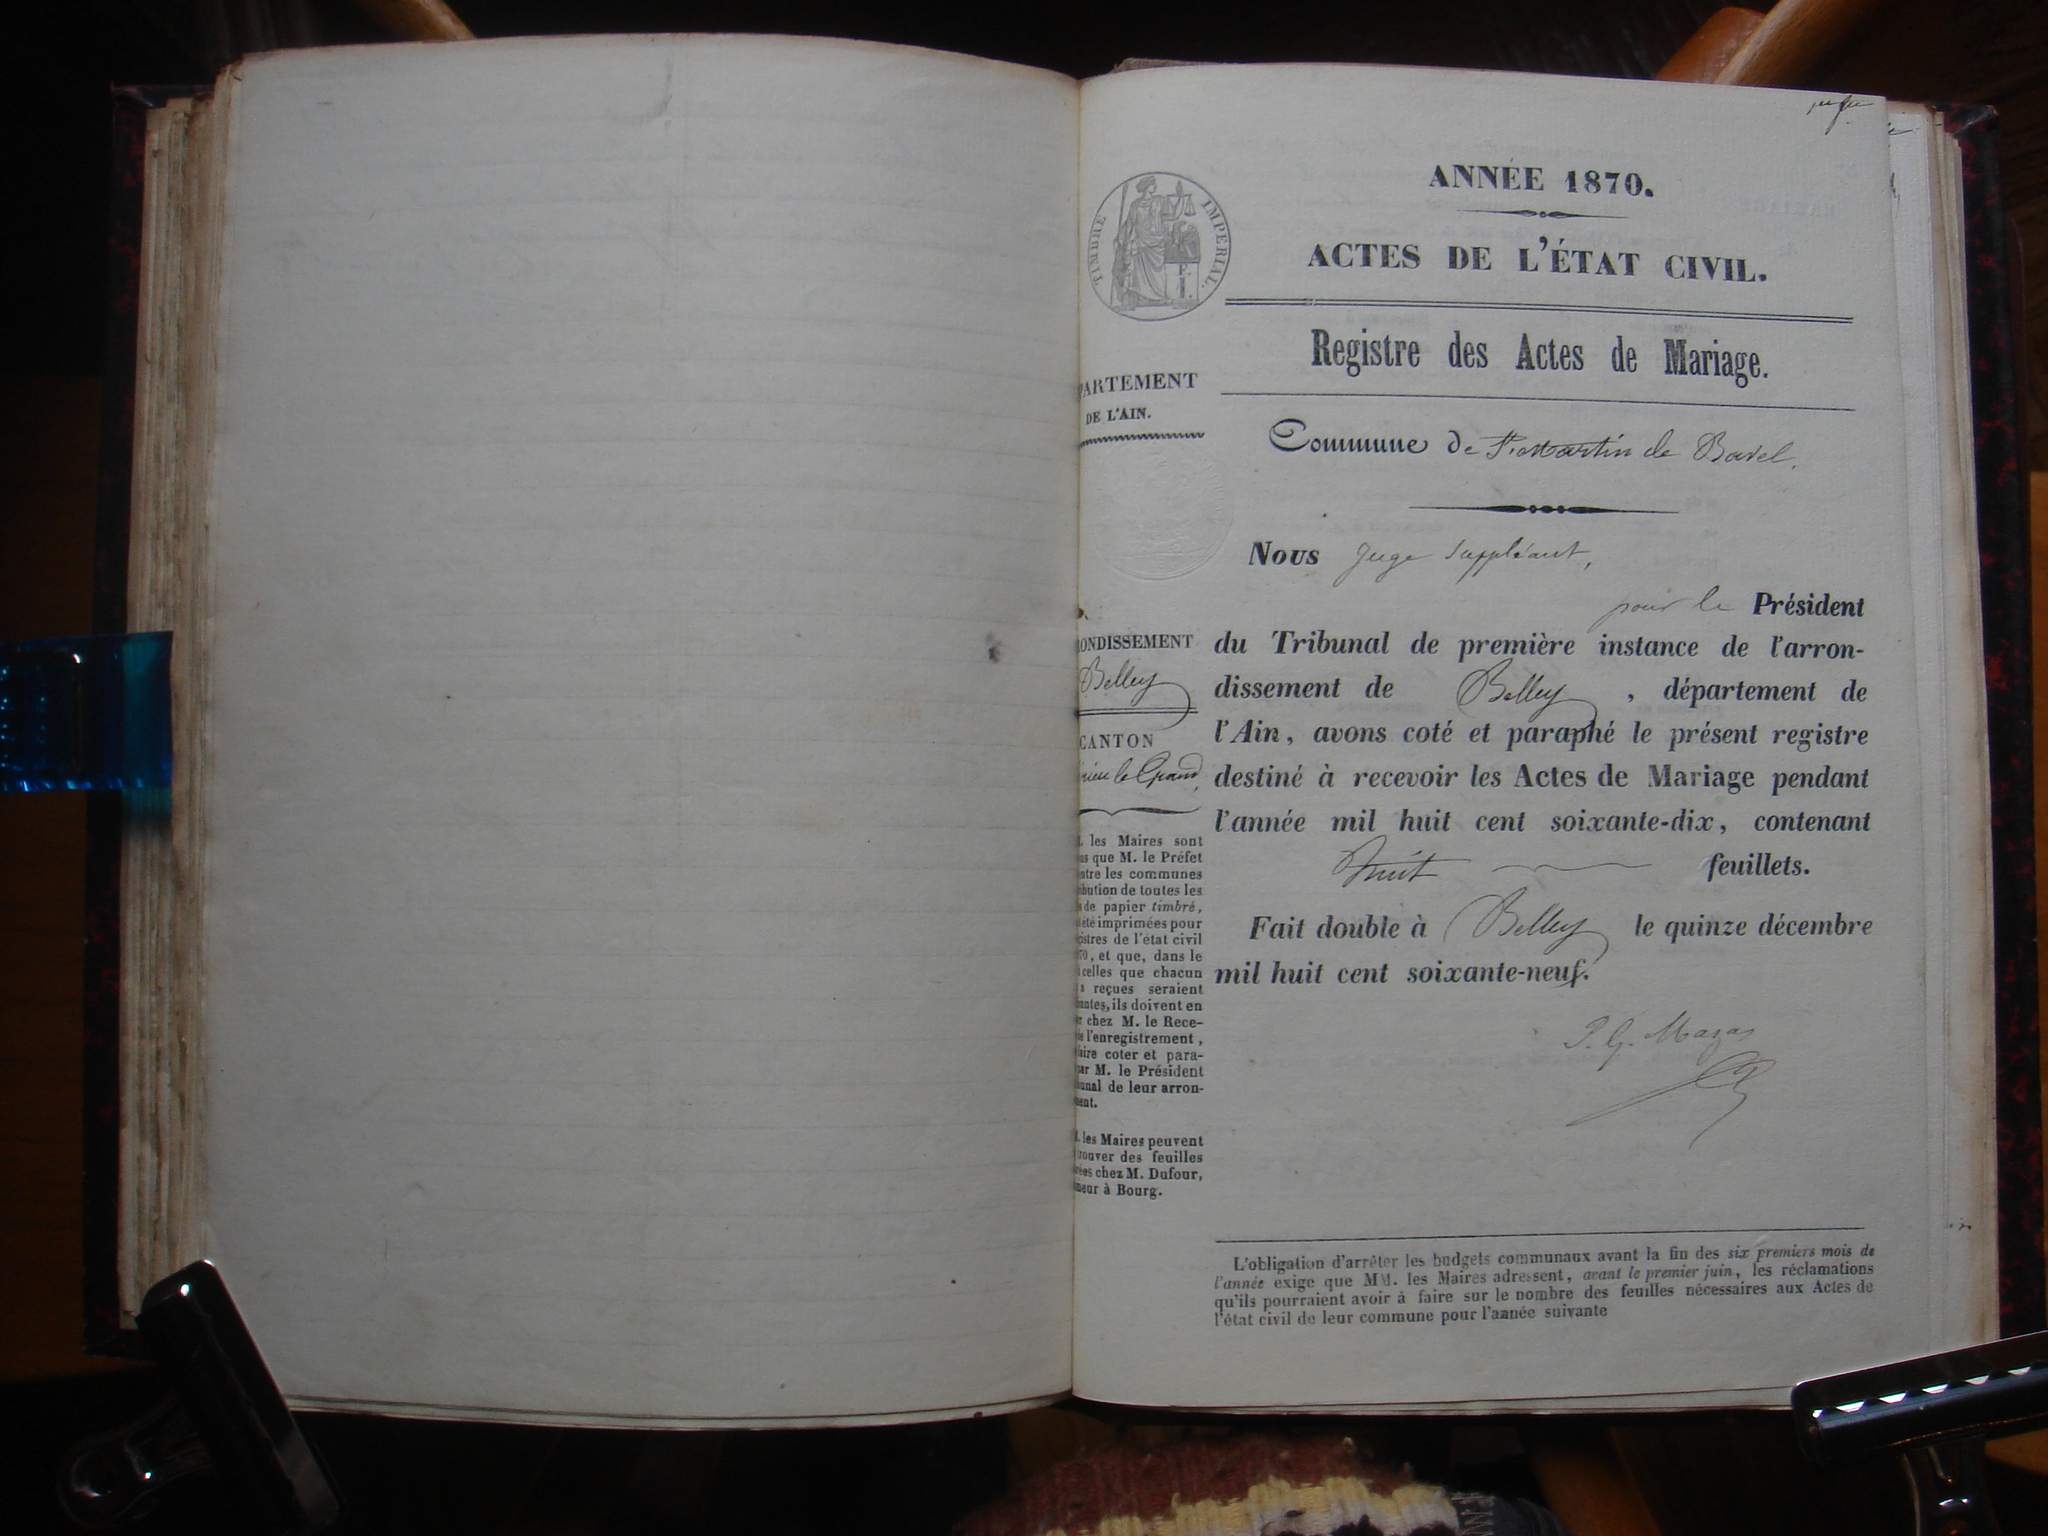 ANNÉE 1870.
ACTES DE L'ÉTAT CIVIL.
TIMBRE IMPERIAL.
Registre des Actes de Mariage.
PARTEMENT
DE L'AIN.
Commune de St. Martin de Bavel.
Nous Juge Suppléant,
pour le Président
du Tribunal de première instance de l'arron-
dissement de Belley, département de
l'Ain, avons coté et paraphé le présent registre
destiné à recevoir les Actes de Mariage pendant
l'année mil huit cent soixante-dix, contenant
huit feuillets.
Fait double à Belley le quinze décembre
mil huit cent soixante-neuf.
P. G. Mazas
ONDISSEMENT
Belley
CANTON
rieu le Grand,
. les Maires sont
us que M. le Préfet
ntre les communes
bution de toutes les
s de papier timbré,
t été imprimées pour
gistres de l'état civil
70, et que, dans le
celles que chacun
s reçues seraient
antes, ils doivent en
r chez M. le Rece-
de l'enregistrement,
faire coter et para-
par M. le Président
bunal de leur arron-
ment.
. les Maires peuvent
trouver des feuilles
rées chez M. Dufour,
meur à Bourg.
L'obligation d'arrêter les budgets communaux avant la fin des six premiers mois de
l'année exige que MM. les Maires adressent, avant le premier juin, les réclamations
qu'ils pourraient avoir à faire sur le nombre des feuilles nécessaires aux Actes de
l'état civil de leur commune pour l'année suivante